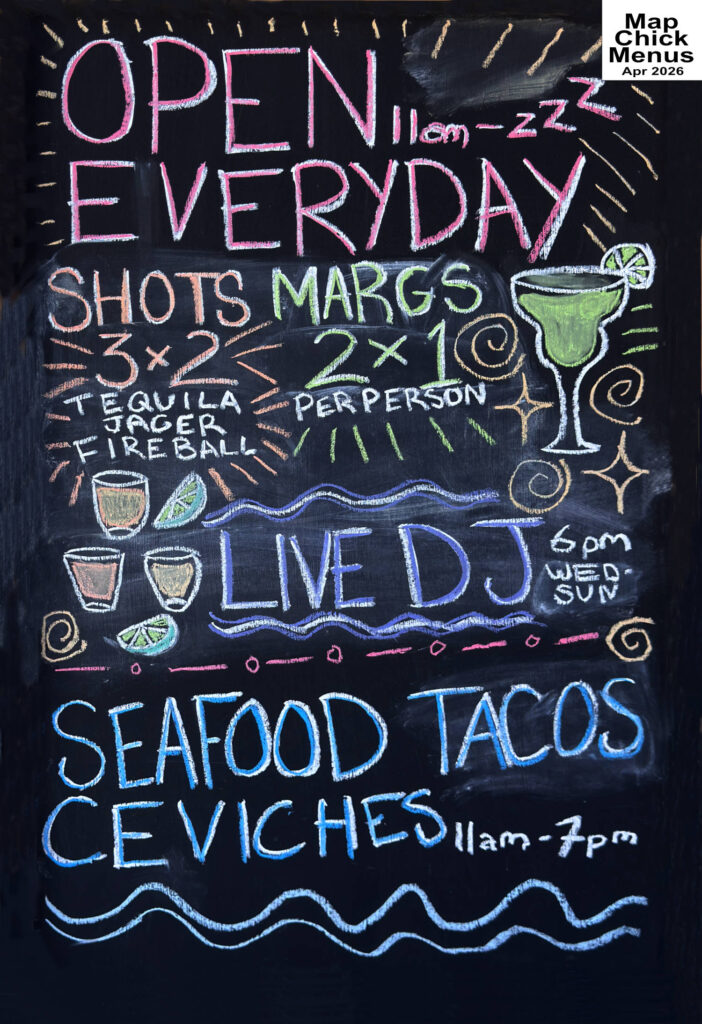 Map
Chick
Menus
Apr 2026
OPEN 11am-zzz
EVERYDAY
SHOTS
3x2
TEQUILA
JAGER
FIREBALL
MARGS
2x1
PER PERSON
LIVE DJ
6pm
WED-
SUN
SEAFOOD TACOS
CEVICHES 11am-7pm